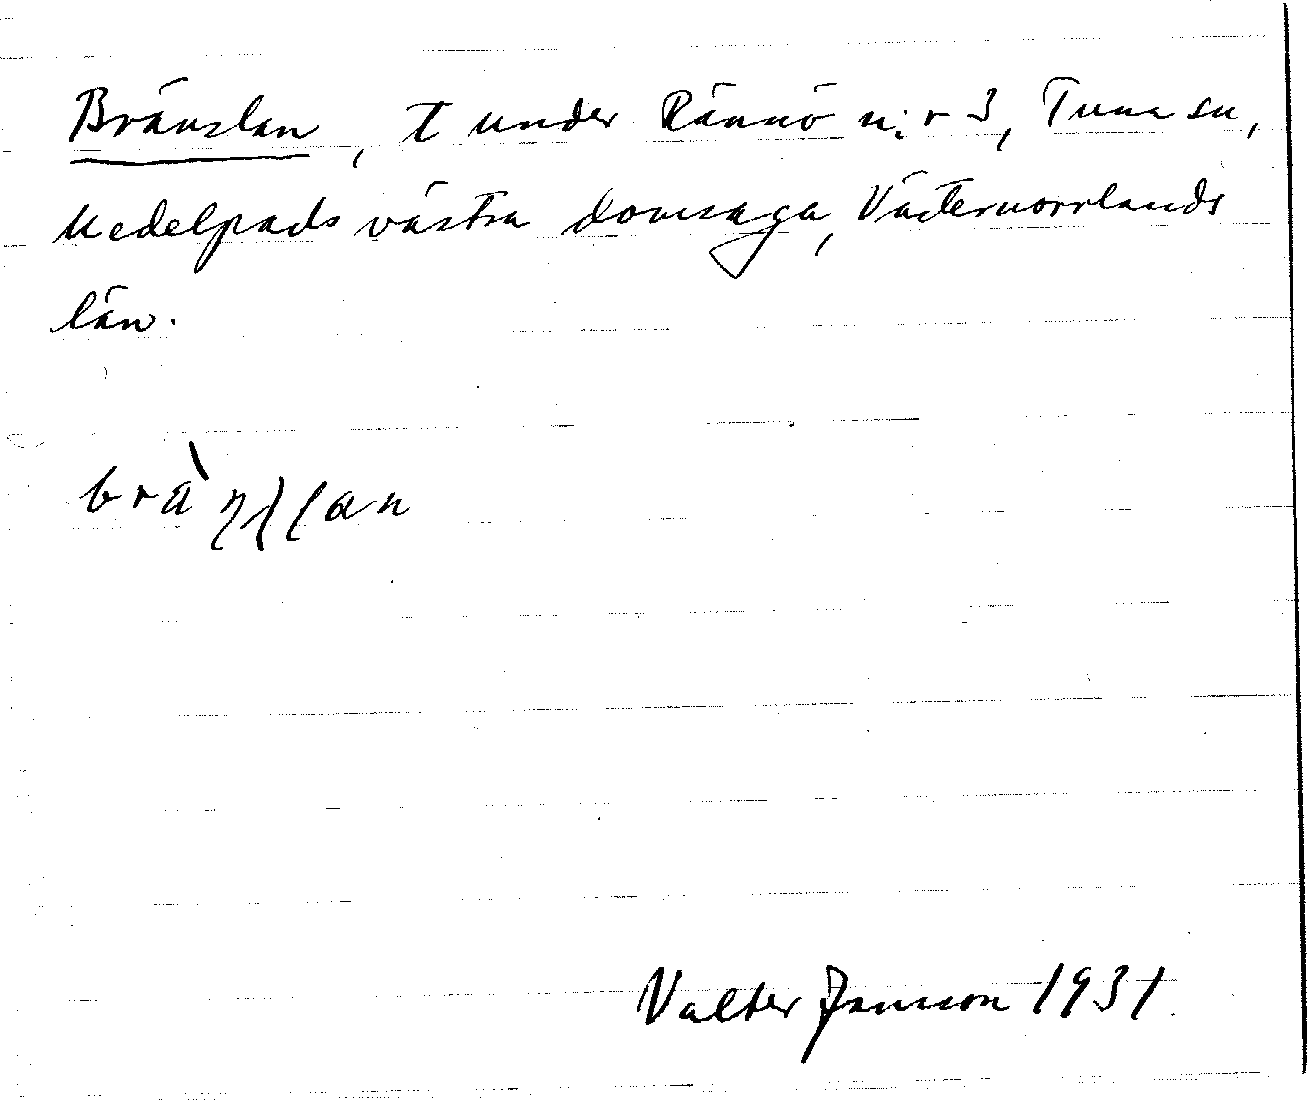 Bränslan, t under Rännö n:r 3, Tuna sn,
Medelpads västra domsaga, Västernorrlands
län.
Valter Jansson 1931